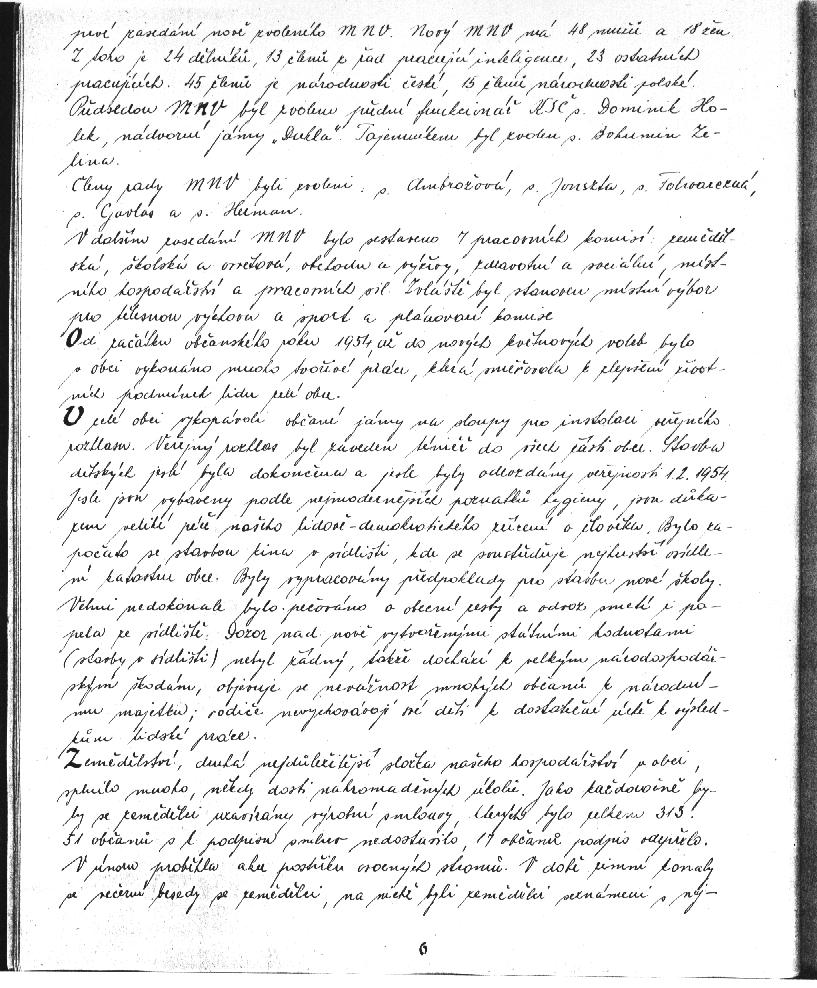 prvé zasedání nově zvoleného MNV. Nový MNV má 48 mužů a 18 žen
Z toho je 24 dělníků, 13 členů z řad pracující inteligence, 23 ostatních
pracujících. 45 členů je národnosti české, 15 členů národnosti polské.
Předsedou MNV byl zvolen přední funkcionář KSČ s. Dominik Ho-
lek, nádvorní jámy „Dukla". Tajemníkem byl zvolen s. Bohumin Ze-
lina.
Členy rady MNV byli zvoleni: s. Ambrožová, s. Jonszta, s. Folwarczná,
s. Gavlas a s. Herman.
V dalším zasedání MNV bylo sestaveno 7 pracovních komisí: zeměděl-
ská, školská a osvětová, obchodu a výživy, zdravotní a sociální, míst-
ního hospodářství a pracovních sil. Zvláště byl stanoven místní výbor
pro tělesnou výchovu a sport a plánovací komise
Od začátku občanského roku 1954 už do nových květnových voleb bylo
v obci vykonáno mnoho tvořivé práce, která směřovala k zlepšení život-
ních podmínek lidu celé obce.
V celé obci vykopávali občané jámy na sloupy pro instalaci veřejného
rozhlasu. Veřejný rozhlas byl zaveden téměř do všech částí obce. Stavba
dětských jeslí byla dokončena a jesle byly odevzdány veřejnosti 1.2.1954.
Jesle jsou vybaveny podle nejmodernějších poznatků hygieny, jsou důka-
zem veliké péče našeho lidově-demokratického zřízení o člověka. Bylo za-
počato se stavbou kina v sídlišti, kde se soustřeďuje nejhustší osídle-
ní katastru obce. Byly vypracovány předpoklady pro stavbu nové školy.
Velmi nedokonale bylo pečováno o obecní cesty a odvoz smetí i po-
pela ze sídliště. Dozor nad nově vytvořenými státními hodnotami
(stavby v sídlišti) nebyl žádný, takže dochází k velkým národospodář-
ským škodám, objevuje se nevážnost mnohých občanů k národní-
mu majetku; rodiče nevychovávají své děti k dostatečné úctě k výsled-
kům lidské práce.
Zemědělství, druhá nejdůležitější složka našeho hospodářství v obci,
splnilo mnoho, někdy dosti nahromaděných úkolů. Jako každoročně by-
ly se zemědělci uzavírány výrobní smlouvy, kterých bylo celkem 313.
51 občanů se k podpisu smluv nedostavilo, 17 občanů podpis odepřelo.
V únoru proběhla akce postřiku ovocných stromů. V době zimní konaly
se večerní besedy se zemědělci, na nichž byli zemědělci seznámeni s nej-
6